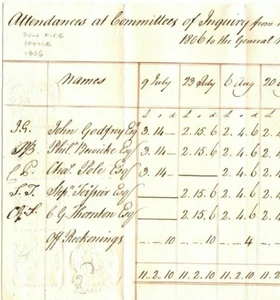 Attendances at Committees of Inquiry from
1806 to the General
SUN FIRE
OFFICE
1806
Names 9 July 23 July 6 Aug 20
£ s d £ s d £ s d £ s
J.G. John Godfrey Esq 3.14.— 2.15.6 2.4.6 2.4.
Phil. Bewicke Esq 3.14.— 2.15.6 2.4.6 2.4.
C.P. Chas. Pole Esq 3.14.— 2.4.6 2.4.
S.T. Teissier Esq 2.15.6 2.4.6 2.4.
C.G. Thornton Esq 2.15.6 2.4.6 2.4.
Off Reckonings — . — 10 — . — 10 — . — 4 — . —
11.2.10 11.2.10 11.2.10 11.2.